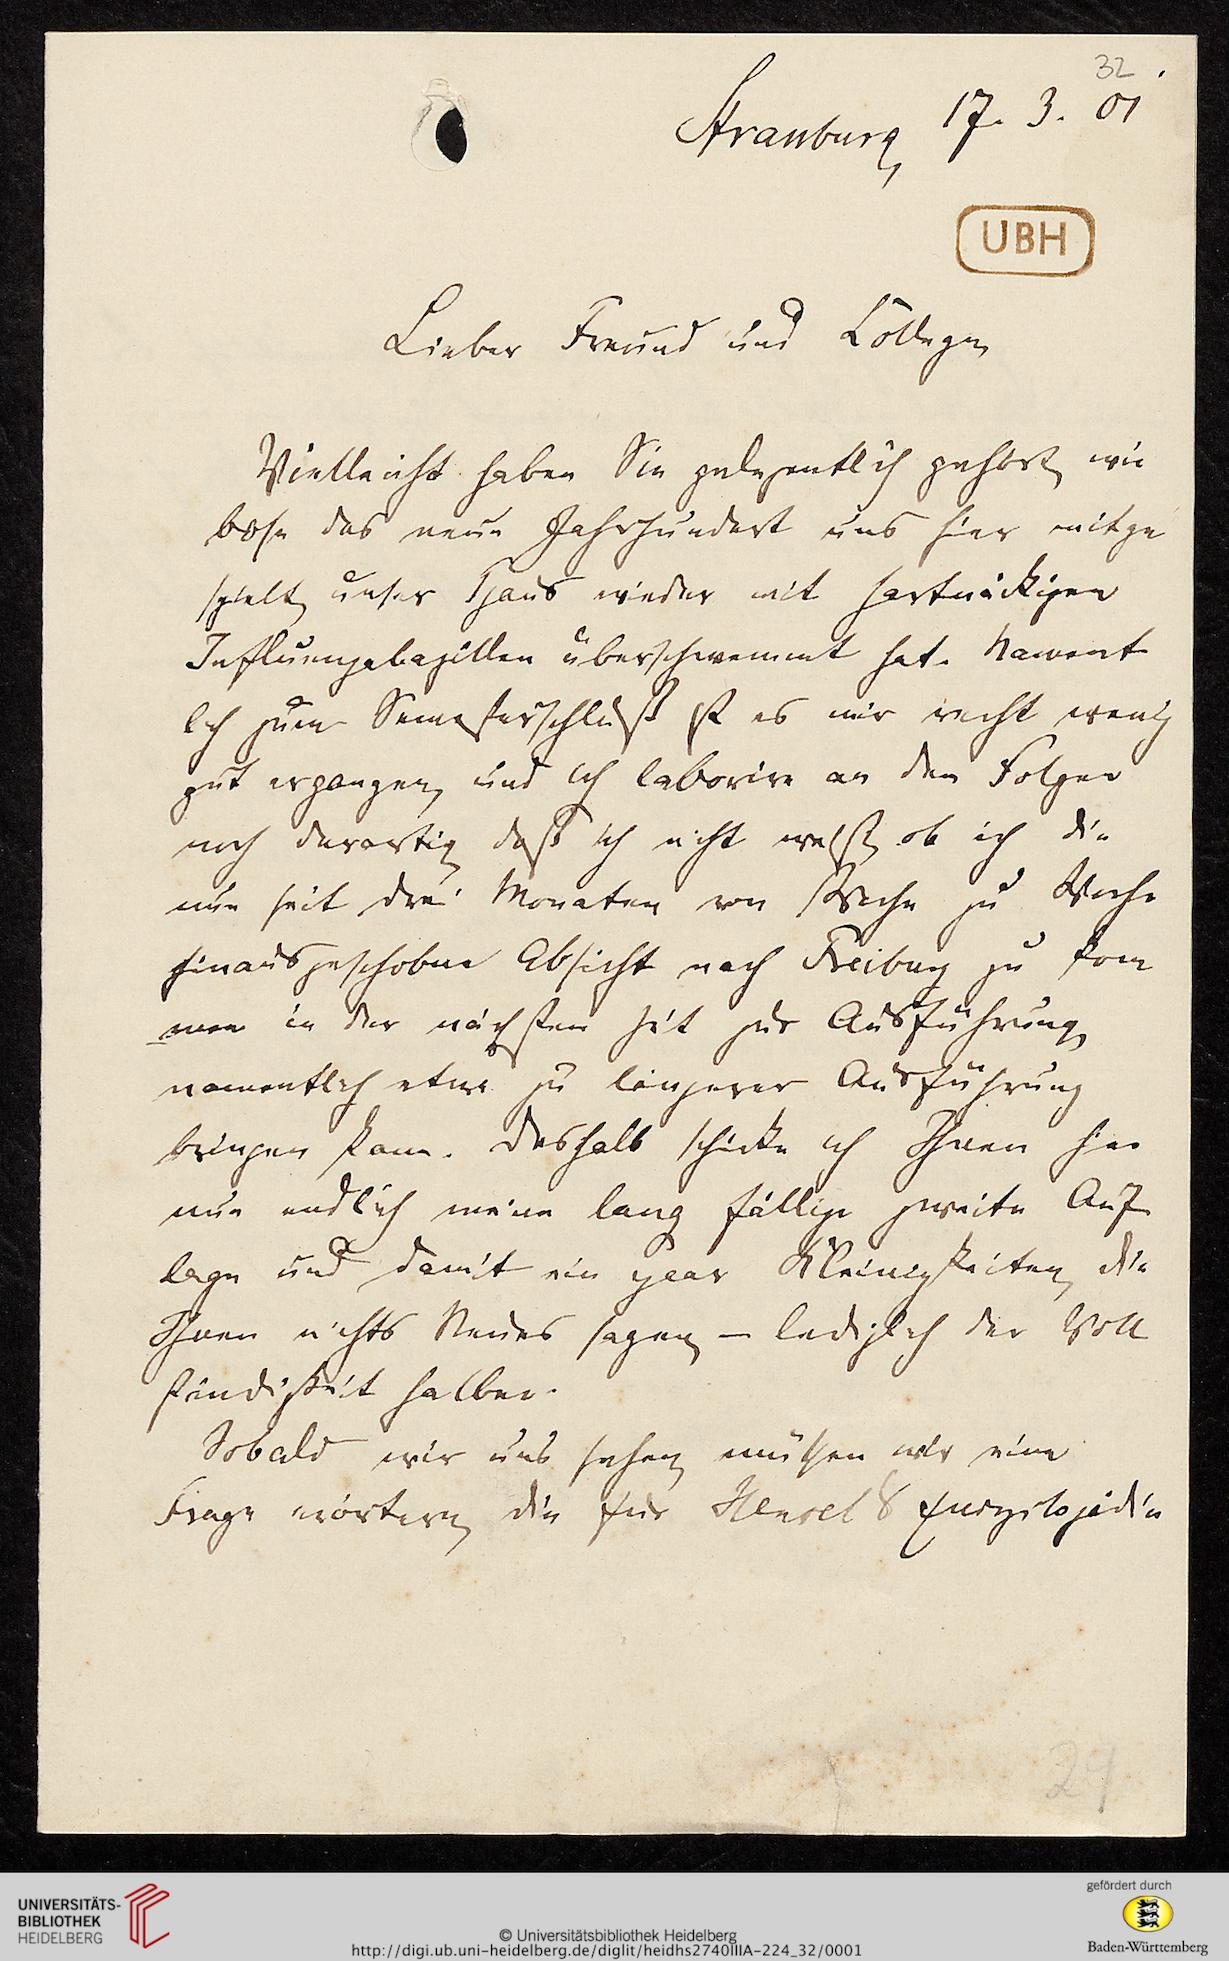 32
Strassburg, 17. 3. 01
UBH
Lieber Freund und College,
Vielleicht haben Sie gelegentlich gehört, wie
böse das neue Jahrhundert uns hier mitge
spielt, unser Haus wieder mit hartnäckigen
Influenzabazillen überschwemmt hat. Nament
lich zum Semesterschluß ist es mir recht wenig
gut ergangen, und ich laborire an den Folgen
noch derartig, daß ich nicht weiß, ob ich die
nun seit drei Monaten von Woche zu Woche
hinausgeschobne Absicht nach Freiburg zu kom
men in der nächsten Zeit zur Ausführung,
namentlich etwa zu längerer Ausführung
bringen kann. Deshalb schicke ich Ihnen hier
nun endlich meine lang fällige zweite Auf
lage und damit ein paar Kleinigkeiten, die
Ihnen nichts Neues sagen, — lediglich der Voll
ständigkeit halber.
Sobald wir uns sehen, müssen wir eine
Frage erörtern, die für Hensel's Encyclopädie
29
UNIVERSITÄTS-
BIBLIOTHEK
HEIDELBERG
© Universitätsbibliothek Heidelberg
http://digi.ub.uni-heidelberg.de/diglit/heidhs2740IIIA-224_32/0001
gefördert durch
Baden-Württemberg